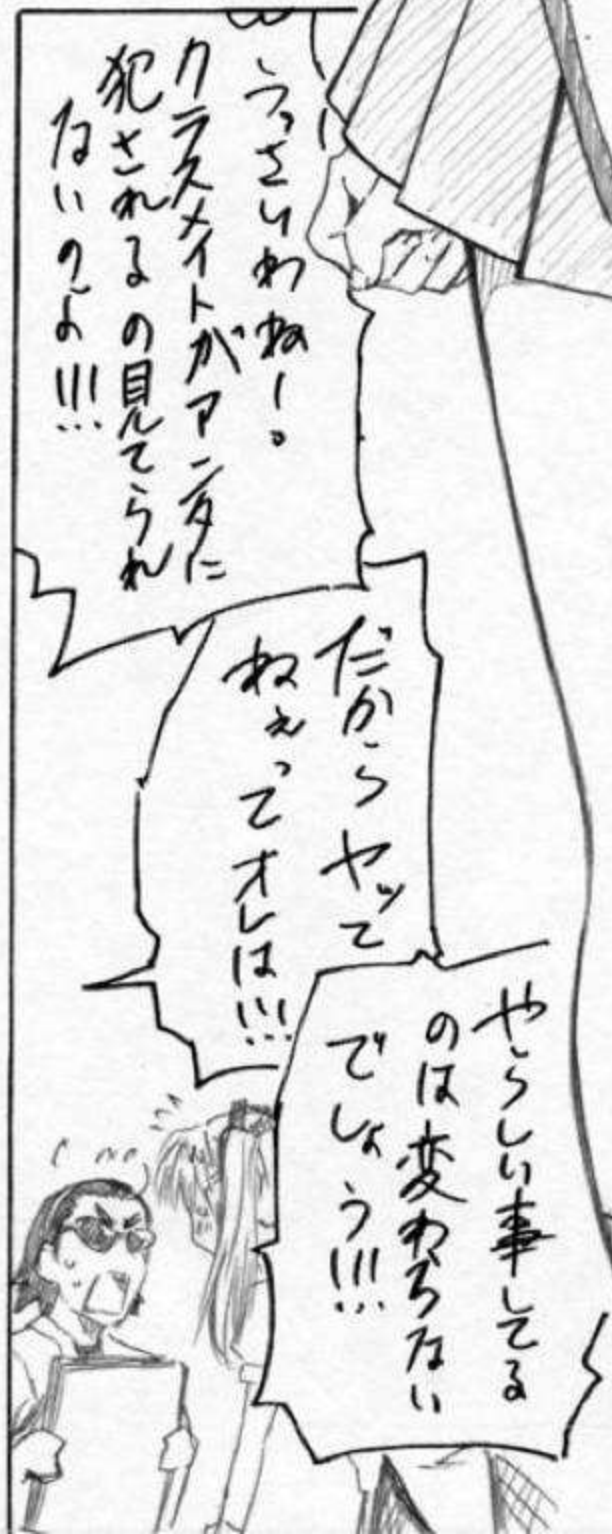 うっさいわねー。
クラスメイトがアンタに
犯されるの見てられ
ないのよ!!!
だからヤッて
ねぇってオレは!!!
やらしい事してる
のは変わらない
でしょう!!!